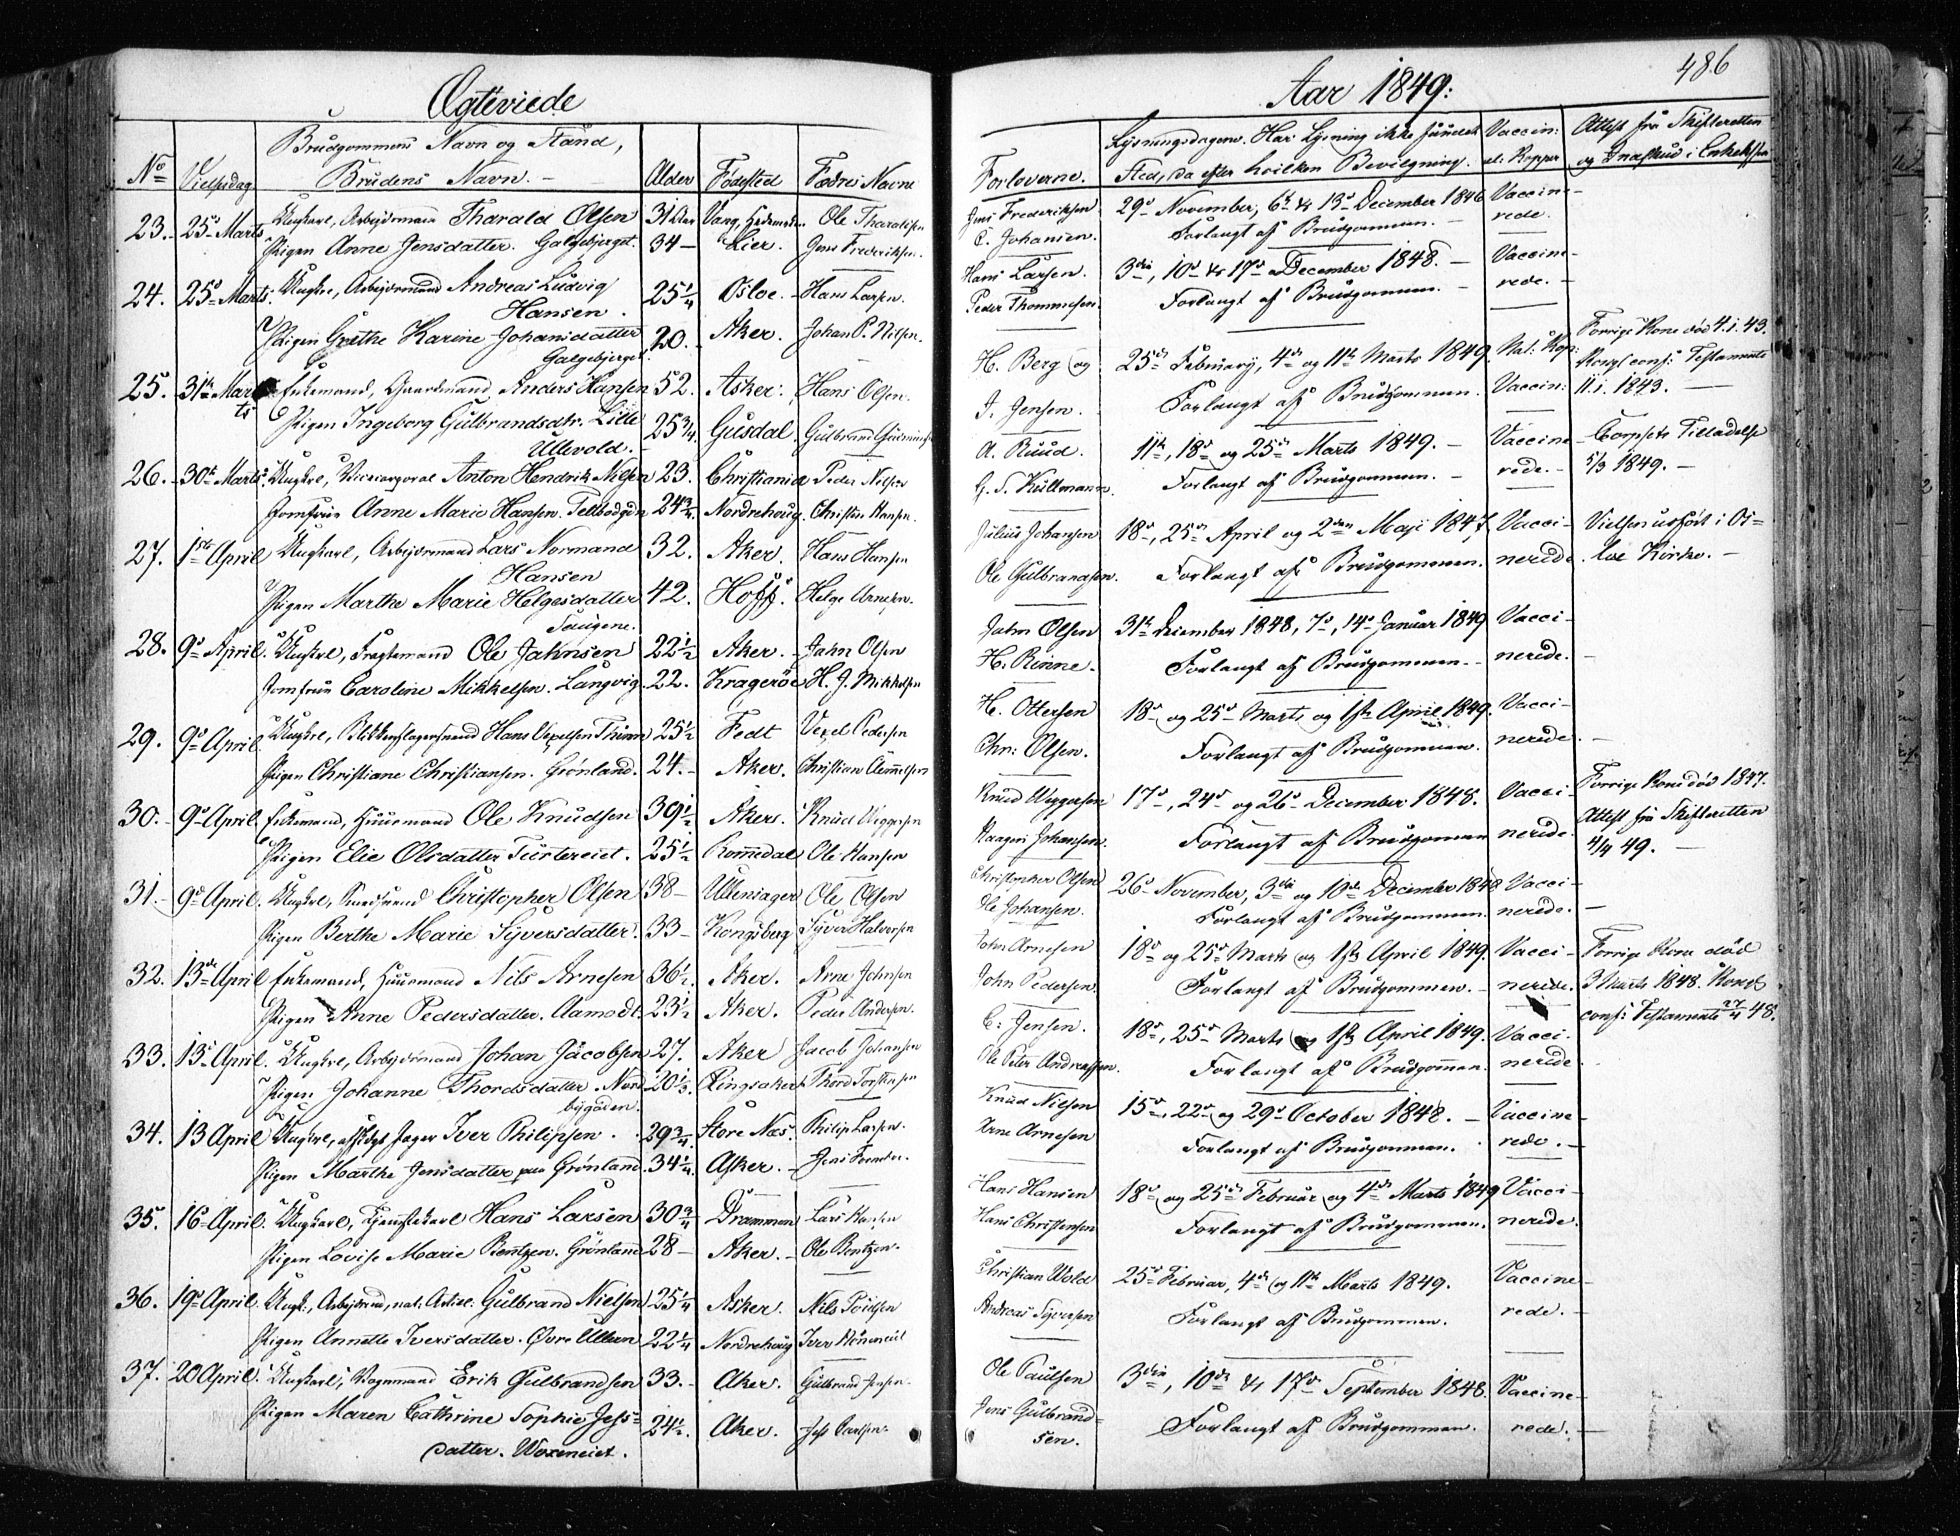 Ægteviede
Aar 1849.
486
No
Vielsesdag
Brudgommens Navn og Stand,
Brudens Navn. —
Alder
Fødested
Fædres Navne
Forloverne.
Lysningsdagene. Har Lysning ikke fundet
Sted, da efter hvilken Bevilgning.
Vaccin:
el: Kopper
Attest fra Skifteretten
23. 25de Marts. Ungkarl, Arbejdsmand Tharald Olsen 31 Aar Vang, Hedemarken Ole Tharaldsen
Pigen Anne Jensdatter. Galgebjerget. 34 — Lier. Jens Frederiksen.
Jens Frederiksen 29de November, 6te & 13de December 1846 Vaccine-
C. Johansen. Forlangt af Brudgommen. rede.
24. 25de Marts. Ungkrl, Arbejdsmand Andreas Ludvig 25 1/4 Osloe. Hans Larsen.
Hansen.
Pigen Grethe Karine Johansdatter 20. Aker. Johan P. Nilsen.
Galgebjerget.
Hans Larsen. 3die, 10de & 17de December 1848. — Vaccine-
Peder Thommesen. Forlangt af Brudgommen. — rede. —
25. 31te Marts Enkemand, Gaardmand Anders Hansen 52. Asker. Hans Olsen.
Pigen Ingeborg Gulbrandsdtr. Lille 25 3/4. Gusdal. Gulbrand
Ullevold.
H. Berg og 25de Februar, 4de og 11te Marts 1849. Nat: Kop: Forrige Kone död 4.1.43.
J. Jensen. Forlangt af Brudgommen. Vaccin: conf: Testamente
11.1.1843. —
26. 30te Marts. Ungkrl, Anton Hendrik Nilsen 23. Christiania Peder Nilsen
Jomfrue Anne Marie Hansen. 24 3/4. Nordrehoug. Christen Hansen.
A. Ruud. 11te, 18de og 25de Marts 1849. — Vaccine- Corpsets Tilladelse
G. S. Kullmann. Forlangt af Brudgommen. — rede. — 5/3 1849. —
27. 1ste April Ungkarl, Arbejdsmand Lars Normand 32. Aker. Hans Hansen
Hansen
Pigen Marthe Marie Helgesdatter 42. Hoff. Helge Arnesen.
Saugene.
Julius Johansen 18de, 25de April og 2den Maji 1847. Vacci- Vielsen udført i Os-
Ole Gulbrandsen. Forlangt af Brudgommen. nerede. loe Kirke. —
28. 9de April. Ungkrl, Fragtemand Ole Jahnsen 22 1/2 Aker. Jahn Olsen
Jomfrue Caroline Mikkelsen. Langvig. 22. Krageröe H. J. Mikkelsen
Jahn Olsen 31te December 1848, 7de, 14de Januar 1849 Vacci-
H. Rinne. Forlangt af Brudgommen. nerede. —
29. 9de April Ungkrl, Blikkenslagersvend Hans 25 1/2 Fedt Pedersen
Pigen Christiane Christiansen. Grönland. 24. — Aker. Christian
H. Ottersen 18de og 25de Marts og 1ste April 1849. Vacci-
Chr: Olsen. Forlangt af Brudgommen. nerede. —
30. 9de April Enkemand, Huusmand Ole Knudsen 39 1/2 Akers. Knud Viggersen
Pigen Elie Olsdatter Türtereiet. 25 1/2 Romedal Ole Hansen
Knud Viggersen 17de, 24de og 26de December 1848. Vacci- Forrige Kone död 1847.
Haagen Johansen. Forlangt af Brudgommen nerede. Attest fra Skifteretten
4/4 49. —
31. 9de April. Ungkrl, Christopher Olsen 38 — Ullensager Ole Olsen
Pigen Berthe Marie Syversdatter. 33 — Kongsberg Syver Halvorsen
Christopher Olsen 26de November, 3die og 10de December 1848. Vacci-
Ole Johansen. Forlangt af Brudgommen. nerede. —
32. 13de April Enkemand, Huusmand Nils Arnesen 36 1/2. Aker. Arne Johnsen
Pigen Anne Pedersdatter. Aamodt. 23 1/2 Aker. Peder Andersen.
John Arnesen 18de og 25de Marts og 1ste April 1849. Vacci- Forrige Kone död
John Pedersen. Forlangt af Brudgommen. — nerede. 3 Marts 1848.
conf: Testamente 27/4 48.
33. 13de April. Ungkrl, Arbejdsmand Johan Jacobsen 27. Aker Jacob Johansen
Pigen Johanne Thordsdatter. Nord- 20 1/2. Ringsaker. Thord Torstensen
bygaden.
C. Jensen. 18de, 25de Marts og 1ste April 1849. Vacci-
Ole Peter Andreassen. Forlangt af Brudgommen. nerede
34. 13 April Ungkrl, Jæger Iver Philipsen. 29 3/4. Store Næs. Philip Larsen.
Pigen Marthe Jensdatter paa Grönland 34 1/4. Asker. Jens
Knud Nielsen 15de, 22de og 29de October 1848. — Vaccine-
Arne Arnesen Forlangt af Brudgommen. rede. —
35. 16de April. Ungkarl, Tjenestekarl Hans Larsen 30 3/4 Drammen Lars Hansen
Pigen Lovise Marie Bentzen. Grönland 28 — Aker. — Ole Bentzen.
Hans Hansen 18de og 25de Februar og 4de Marts 1849 Vacci-
Hans Christensen. Forlangt af Brudgommen. nerede.
36. 19de April. Ungk:, Arbejdsmd, Gulbrand Nielsen 25 1/4 Asker. Nils
Pigen Annette Iversdatter. Øvre Ullern 22 1/4 Nordrehoug Iver
Christian Wold 25de Februar, 4de og 11te Marts 1849. Vaccine-
Andreas Syversen Forlangt af Brudgommen. rede. —
37. 20 April. Ungkarl, Vognmand Erik Gulbrandsen 33. — Aker. Gulbrand Jensen.
Pigen Maren Cathrine Sophie Jess= 24 1/2. Aker. Jess
datter. Woxeneiet.
Ole Paulsen 3die, 10de & 17de September 1848. Vaccine-
Jens Gulbrand= Forlangt af Brudgommen. rede. —
sen.